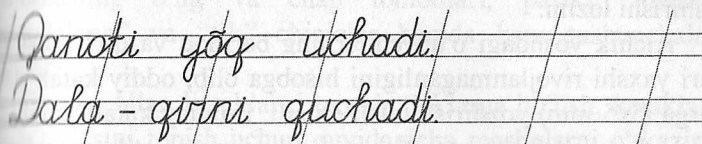 Qanoti yõq uchadi.
Dala - qirni quchadi.